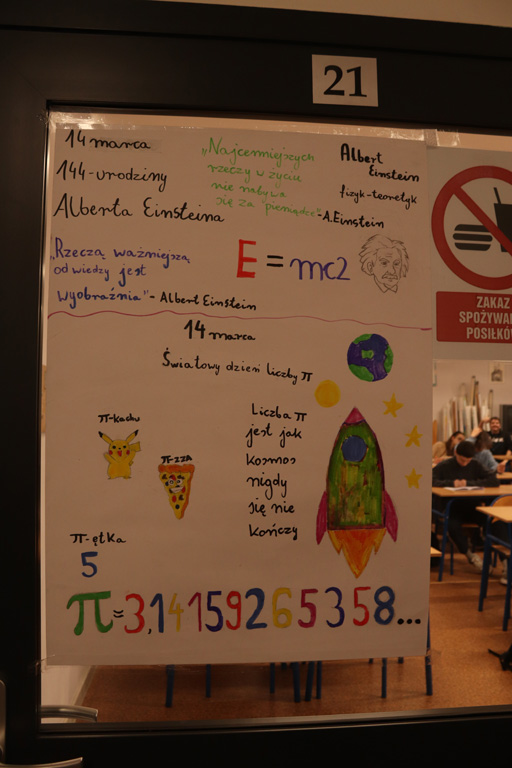 21
14 marca
144-urodziny
Alberta Einsteina
„Najcenniejszych
rzeczy w życiu
nie nabywa
się za pieniądze"
-A.Einstein
Albert
Einstein
fizyk-teoretyk
„Rzeczą ważniejszą
od wiedzy jest
wyobraźnia" - Albert Einstein
E = mc2
14 marca
Światowy dzień liczby π
π-kachu
π-zza
Liczba π
jest jak
kosmos
nigdy
się nie
kończy
π-ętka
5
π=3,14159265358...
ZAKAZ
SPOŻYWA
POSIŁKÓ